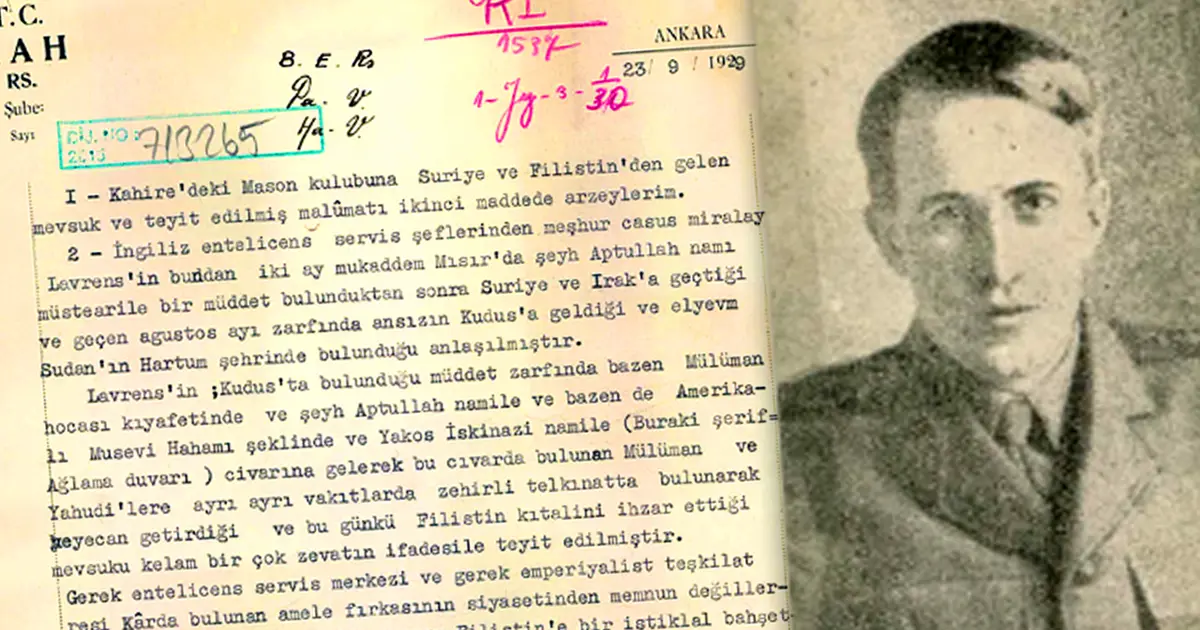 T.C.
AH
RS.
Şube:
Sayı
DİJ. NO :
2015
713265
B. E. Rs
Pa. V.
Ha. V
RI
1537
1-Jy-3-1/30
ANKARA
23/ 9 / 1929
I - Kahire'deki Mason kulubuna Suriye ve Filistin'den gelen
mevsuk ve teyit edilmiş malûmatı ikinci maddede arzeylerim.
2 - İngiliz entelicens servis şeflerinden meşhur casus miralay
Lavrens'in bundan iki ay mukaddem Mısır'da şeyh Aptullah namı
müstearile bir müddet bulunduktan sonra Suriye ve Irak'a geçtiği
ve geçen agustos ayı zarfında ansızın Kudus'a geldiği ve elyevm
Sudan'ın Hartum şehrinde bulunduğu anlaşılmıştır.
Lavrens'in ;Kudus'ta bulunduğu müddet zarfında bazen Mülüman
hocası kıyafetinde ve şeyh Aptullah namile ve bazen de Amerika-
lı Musevi Hahamı şeklinde ve Yakos İskinazi namile (Buraki şerif=
Ağlama duvarı ) civarına gelerek bu cıvarda bulunan Mülüman ve
Yahudi'lere ayrı ayrı vakıtlarda zehirli telkınatta bulunarak
heyecan getirdiği ve bu günkü Filistin kıtalini ihzar ettiği
mevsuku kelam bir çok zevatın ifadesile teyit edilmiştir.
Gerek entelicens servis merkezi ve gerek emperiyalist teşkilat
resi Kârda bulunan amele fırkasının siyasetinden memnun değiller-
Filistin'e bir istiklal bahşet-